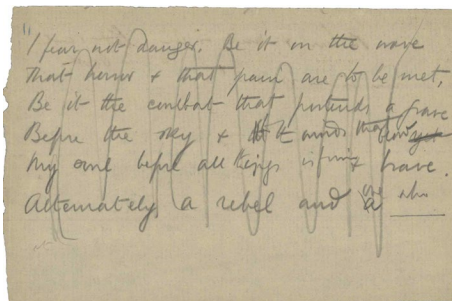 "I fear not danger. Be it on the wave
That horror & that pain are to be met,
Be it the combat that portends a grave
Before the sky & the winds that blow yet
My one before all things is find brave.
Alternately a rebel and a